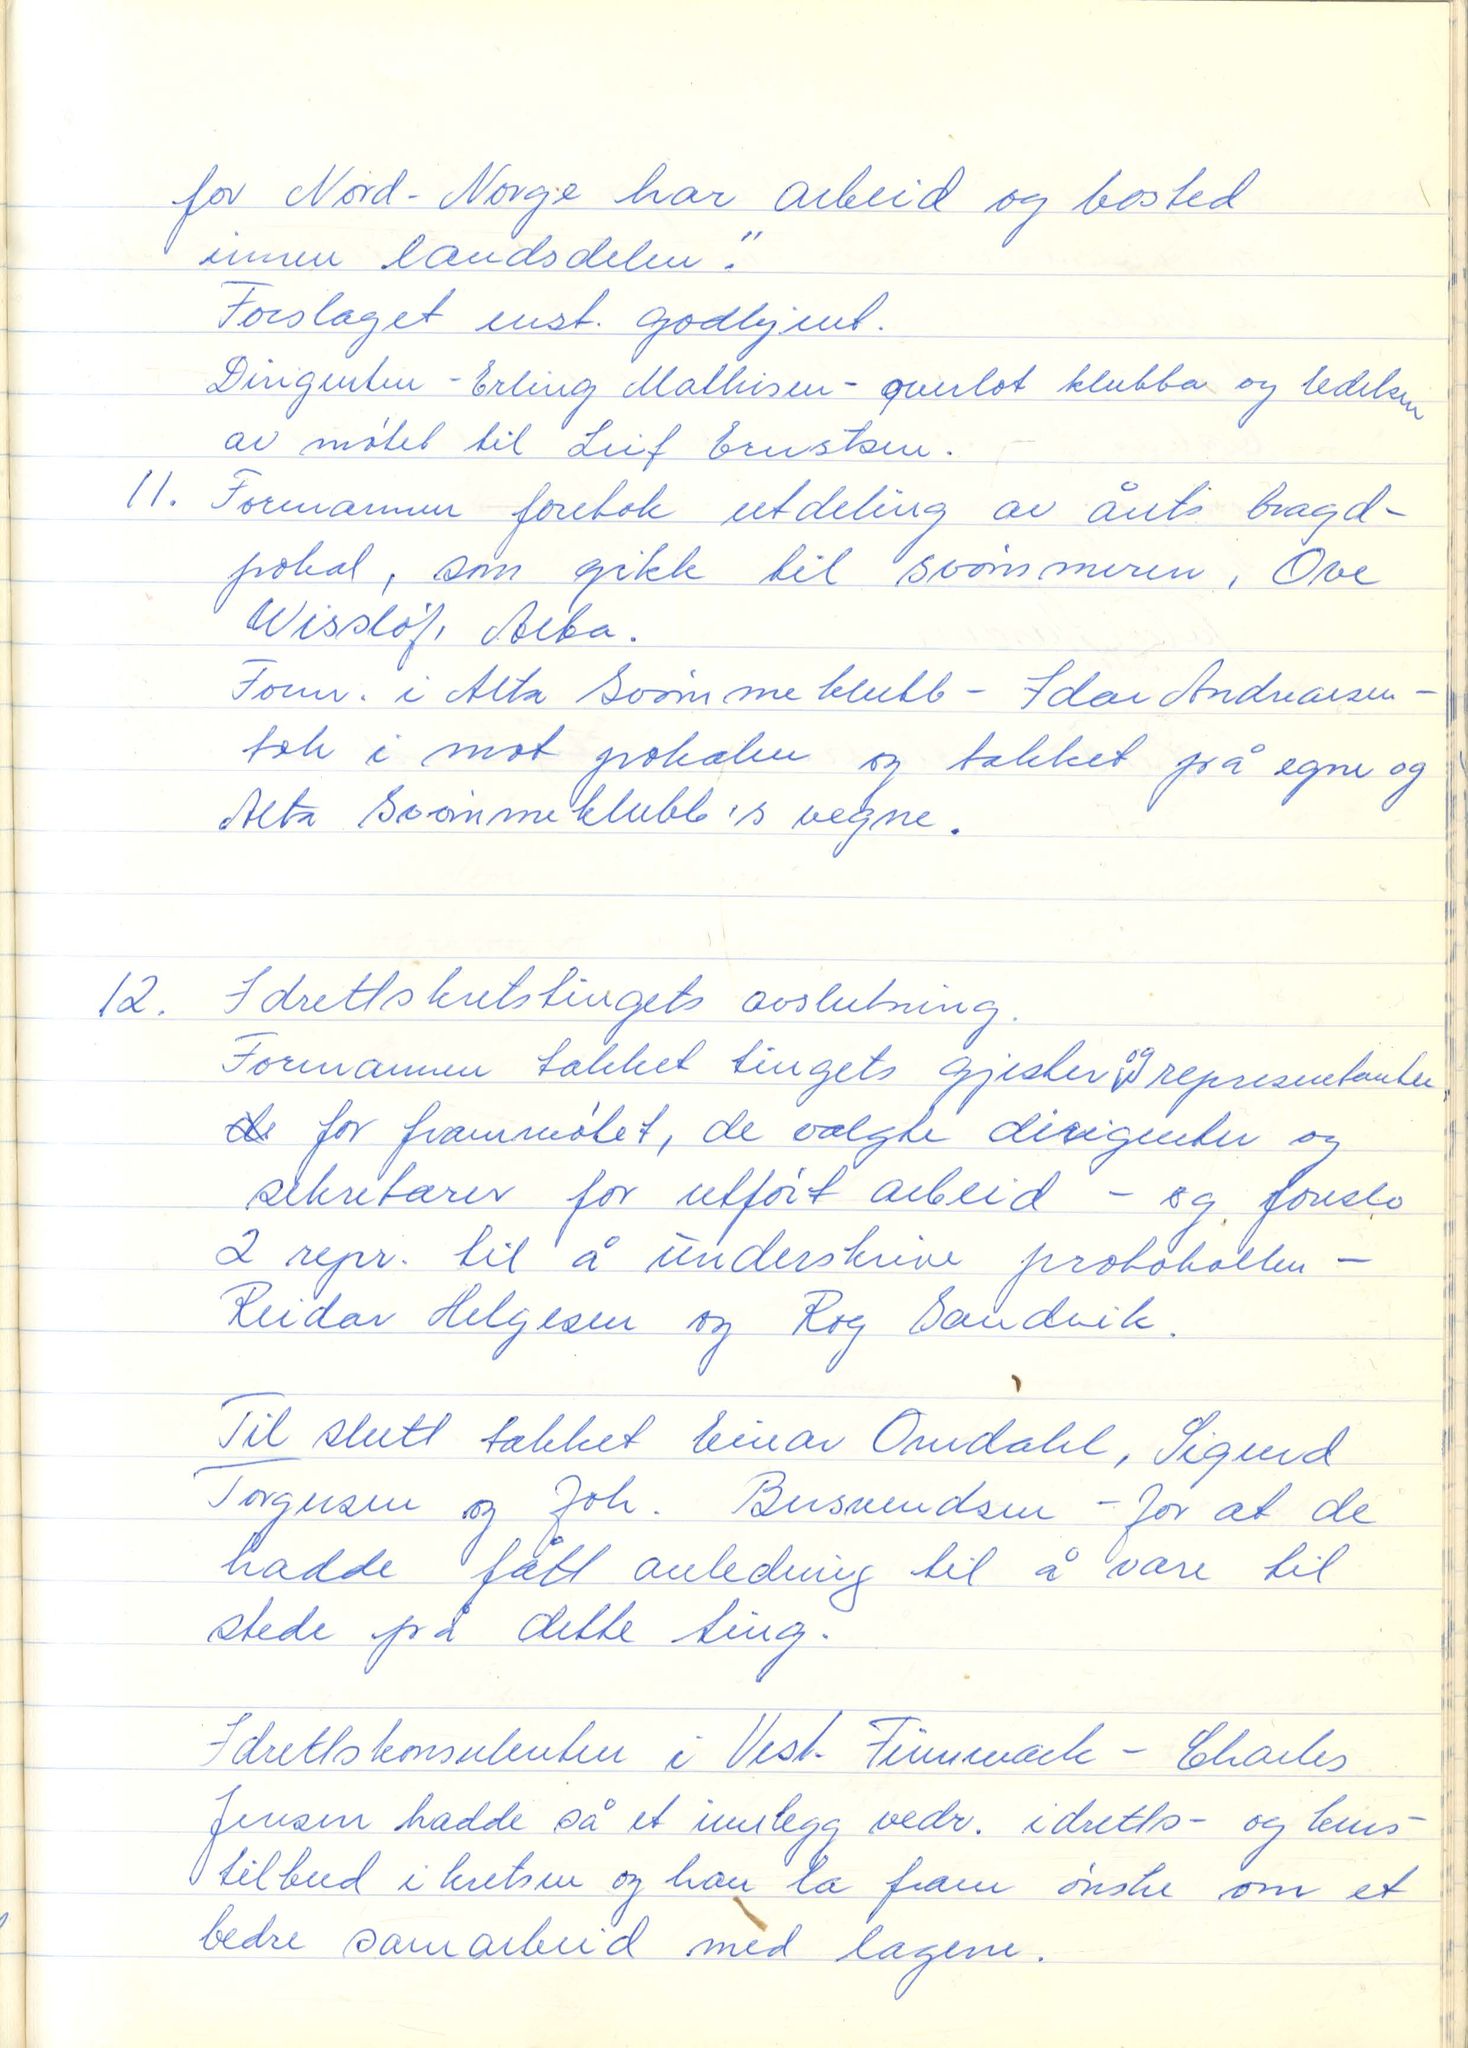 for Nord-Norge har arbeid og bosted
innen landsdelen."
Forslaget enst. godkjent.
Dirigenten - Erling Mathisen - overlot klubba og ledelsen
av møtet til Leif Ernstsen.
11. Formannen foretok utdeling av årets bragd-
pokal, som gikk til svømmeren, Ove
Wissløf, Alta.
Form. i Alta Svømmeklubb - Idar Andreassen -
tok i mot pokalen og takket på egne og
Alta Svømmeklubb's vegne.
12. Idrettskretstingets avslutning.
Formannen takket tingets gjester og representanter,
for frammøtet, de valgte dirigenter og
sekretærer for utført arbeid - og foreslo
2 repr. til å underskrive protokollen -
Reidar Helgesen og Rog Sandvik.
Til slutt takket Einar Omdahl, Sigurd
Torgersen og Joh. Bersvendsen - for at de
hadde fått anledning til å være til
stede på dette ting.
Idrettskonsulenten i Vest-Finnmark - Charles
Jensen hadde så et innlegg vedr. idretts- og kurs-
tilbud i kretsen og han la fram ønske om et
bedre samarbeid med lagene.